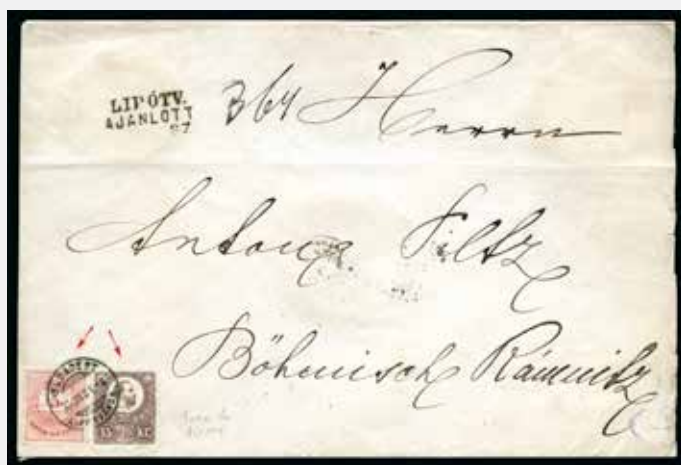 LIPÓTV.
AJÁNLOTT
27
364 Herrn
Anton Filtz
Böhmisch Kámnitz
15 KR